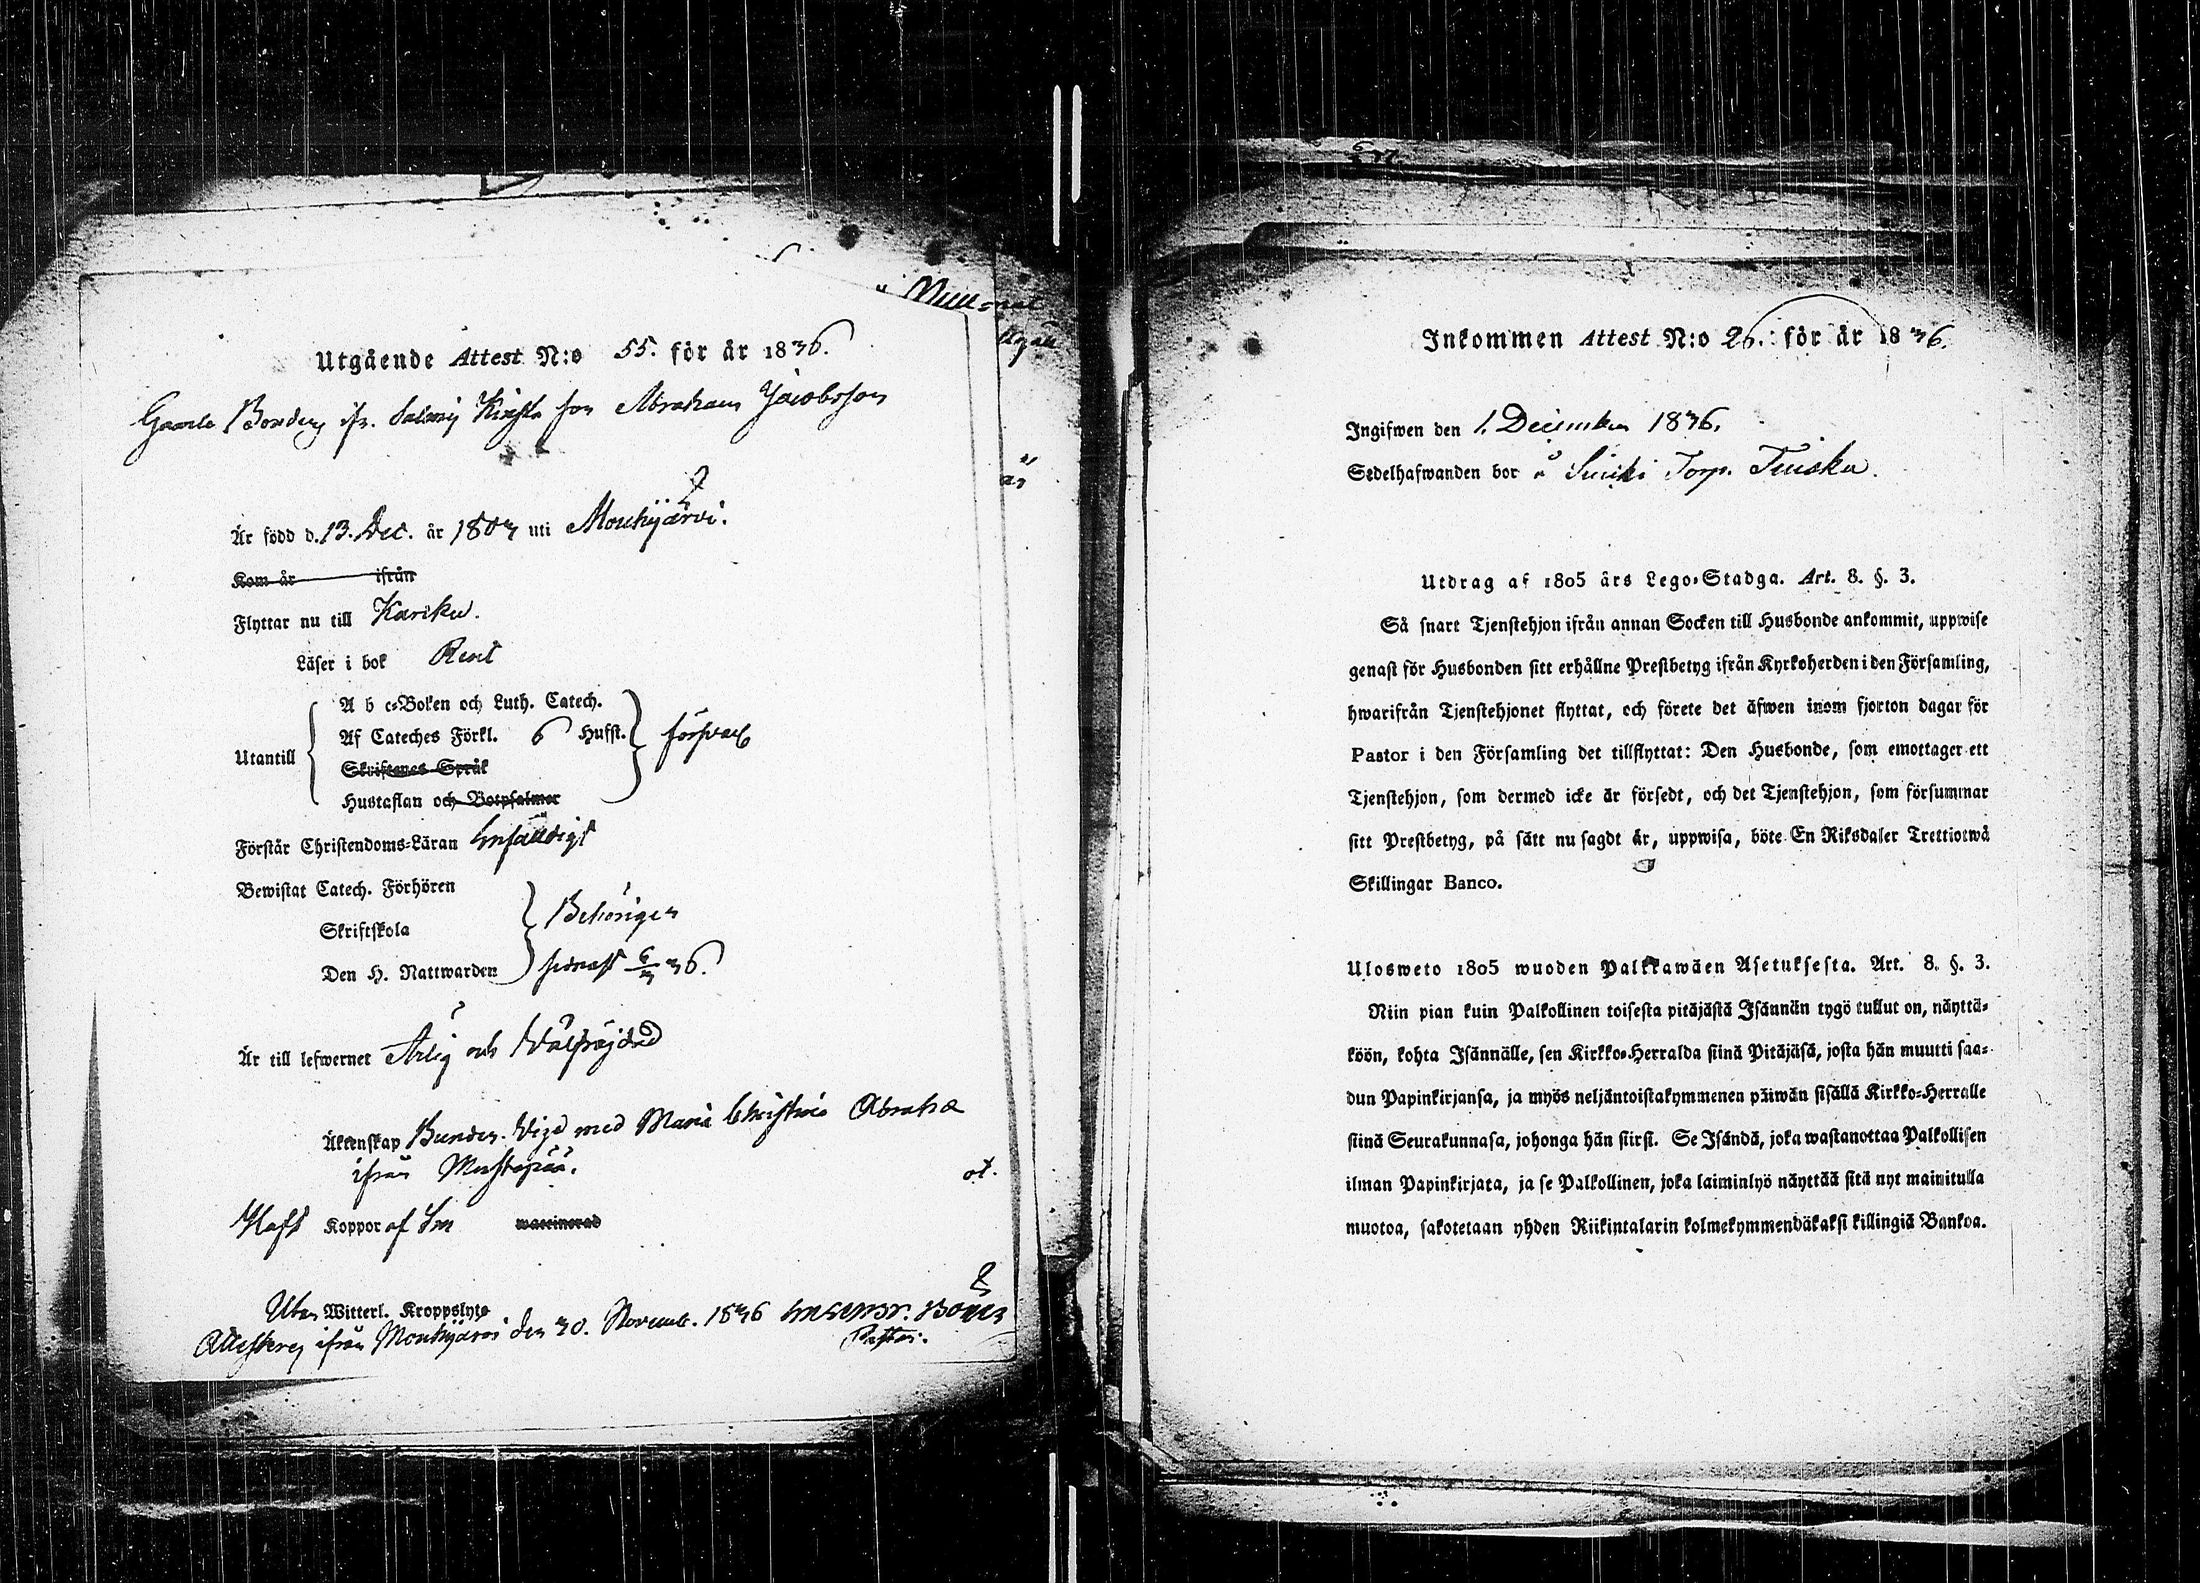 Utgående Attest N:o 55. för år 1836.
Gamle Bonden ifr. Salmij Kirsti son Abraham Jacobsson
Är född d. 13. Dec. år 1803 uti Mouhijärvi.
Kom år ifrån
Flyttar nu till Karcku.
Läser i bok Rent
Utantill
A b c-Boken och Luth. Catech.
Af Cateches Förkl. 6 Hufst. försvarl
Skriftenes Språk
Hustaflan och Botpsalmer
Förstår Christendoms-Läran Enfaldigt
Bewistat Catech. Förhören
Skriftskola Behörigen
Den H. Nattwarden sidnast 6/3 36.
Är till lefwernet Ärlig och Välfräjdad
Äktenskap Bunden. Vigd med Maria Christina Abrah
ifrån Mustapää. dt.
Haft Koppor af Em waccinerad
Utan Witterl. Kroppslyte
Attesterej ifrån Mouhijärvi den 30. Novemb. 1836
Pastor.
Inkommen Attest N:o 26. för år 1836.
Ingifwen den 1. December 1836.
Sedelhafwanden bor å Torp. Tuiska.
Utdrag af 1805 års Lego-Stadga. Art. 8. §. 3.
Så snart Tjenstehjon ifrån annan Socken till Husbonde ankommit, uppwise
genast för Husbonden sitt erhållne Prestbetyg ifrån Kyrkoherden i den Församling,
hwarifrån Tjenstehjonet flyttat, och förete det äfwen inom fjorton dagar för
Pastor i den Församling det tillflyttat: Den Husbonde, som emottager ett
Tjenstehjon, som dermed icke är försedt, och det Tjenstehjon, som försummar
sitt Prestbetyg, på sätt nu sagdt är, uppwisa, böte En Riksdaler Trettiotwå
Skillingar Banco.
Ulosweto 1805 wuoden Palkkawäen Asetuksesta. Art. 8. §. 3.
Niin pian kuin Palkollinen toisesta pitäjästä Isännän tygö tullut on, näyttä-
köön, kohta Isännälle, sen Kirkko-Herralda siinä Pitäjäsä, josta hän muutti saa-
dun Papinkirjansa, ja myös neljäntoistakymmenen päiwän sisällä Kirkko-Herralle
siinä Seurakunnasa, johonga hän siirsi. Se Isändä, joka wastanottaa Palkollisen
ilman Papinkirjata, ja se Palkollinen, joka laiminlyö näyttää sitä nyt mainitulla
muotoa, sakotetaan yhden Riikintalarin kolmekymmendäkaksi killingiä Bankoa.